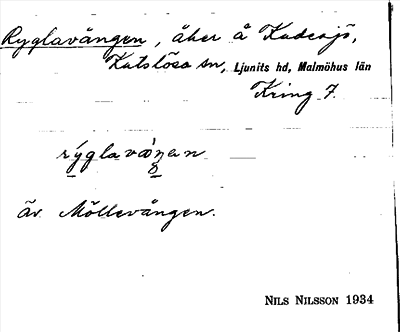 Ryglavången, åker å Kadesjö,
Katslösa sn, Ljunits hd, Malmöhus län
Kring 7.
rýglavàŋan
äv. Möllevången.
NILS NILSSON 1934